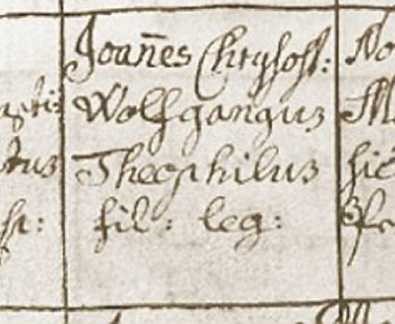 Joañes Chrysost: No
Wolfgangus
Theophilus hic
fil: leg: